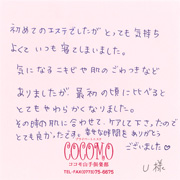 初めてのエステでしたが とっても 気持ち
よくて いつも 寝てしまいました。
気になる ニキビ や 肌の ごわつき など
ありましたが 最初の頃に比べると
とても やわらかく なりました。
その時の肌に合わせて、ケアして下さったので
とても良かったです。幸せな時間を ありがとう
ございました♡
COCOMO
ココモ山手倶楽部
TEL・FAX(0773)75-6875
U 様